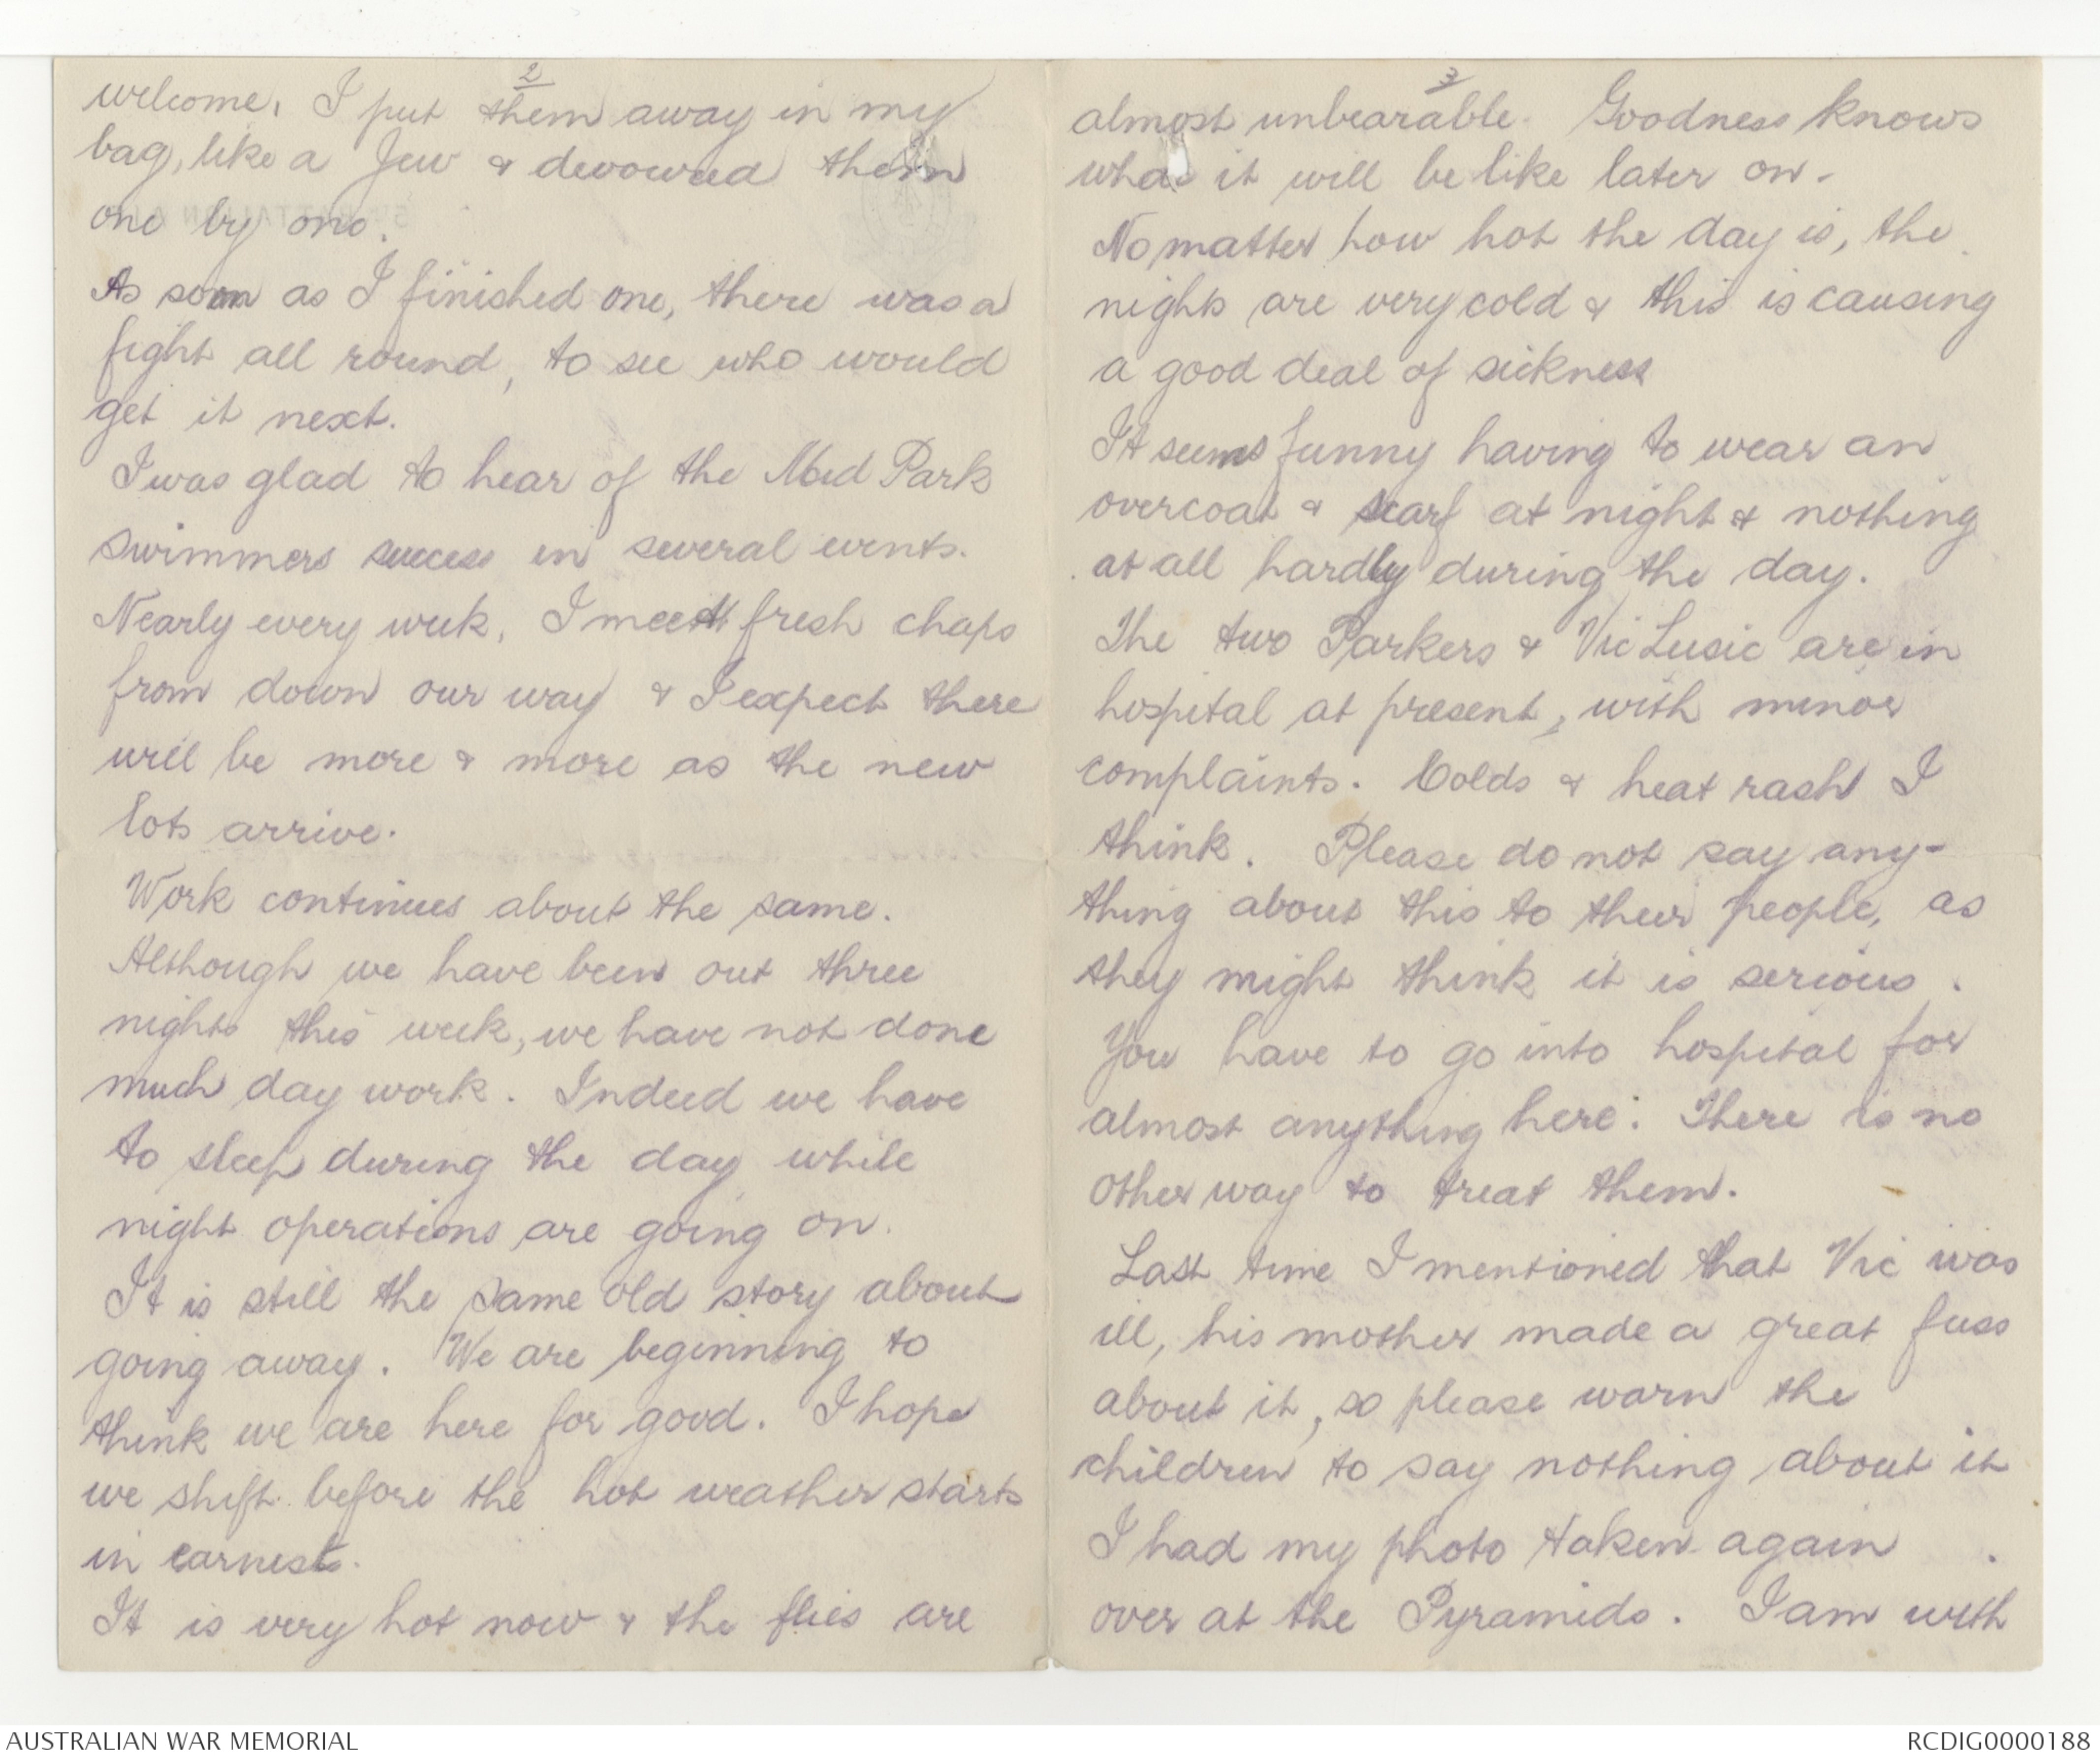 2
welcome. I put them away in my
bag, like a Jew & devoured them
one by one.
As soon as I finished one, there was a
fight all round, to see who would
get it next.
I was glad to hear of the Mid Park
swimmers success in several events.
Nearly every week, I meet fresh chaps
from down our way & I expect there
will be more & more as the new
lots arrive.
Work continues about the same.
Although we have been out three
nights this week, we have not done
much day work. Indeed we have
to sleep during the day while
night operations are going on.
It is still the same old story about
going away. We are beginning to
think we are here for good. I hope
we shift before the hot weather starts
in earnest.
It is very hot now & the flies are
3
almost unbearable. Goodness knows
what it will be like later on.
No matter how hot the day is, the
nights are very cold & this is causing
a good deal of sickness
It seems funny having to wear an
overcoat & scarf at night & nothing
at all hardly during the day.
The two Parkers & Vic Lusic are in
hospital at present, with minor
complaints. Colds & heat rash I
think. Please do not say any-
thing about this to their people, as
they might think it is serious.
You have to go into hospital for
almost anything here. There is no
other way to treat them.
Last time I mentioned that Vic was
ill, his mother made a great fuss
about it, so please warn the
children to say nothing about it
I had my photo taken again
over at the Pyramids. I am with
AUSTRALIAN WAR MEMORIAL
RCDIG0000188